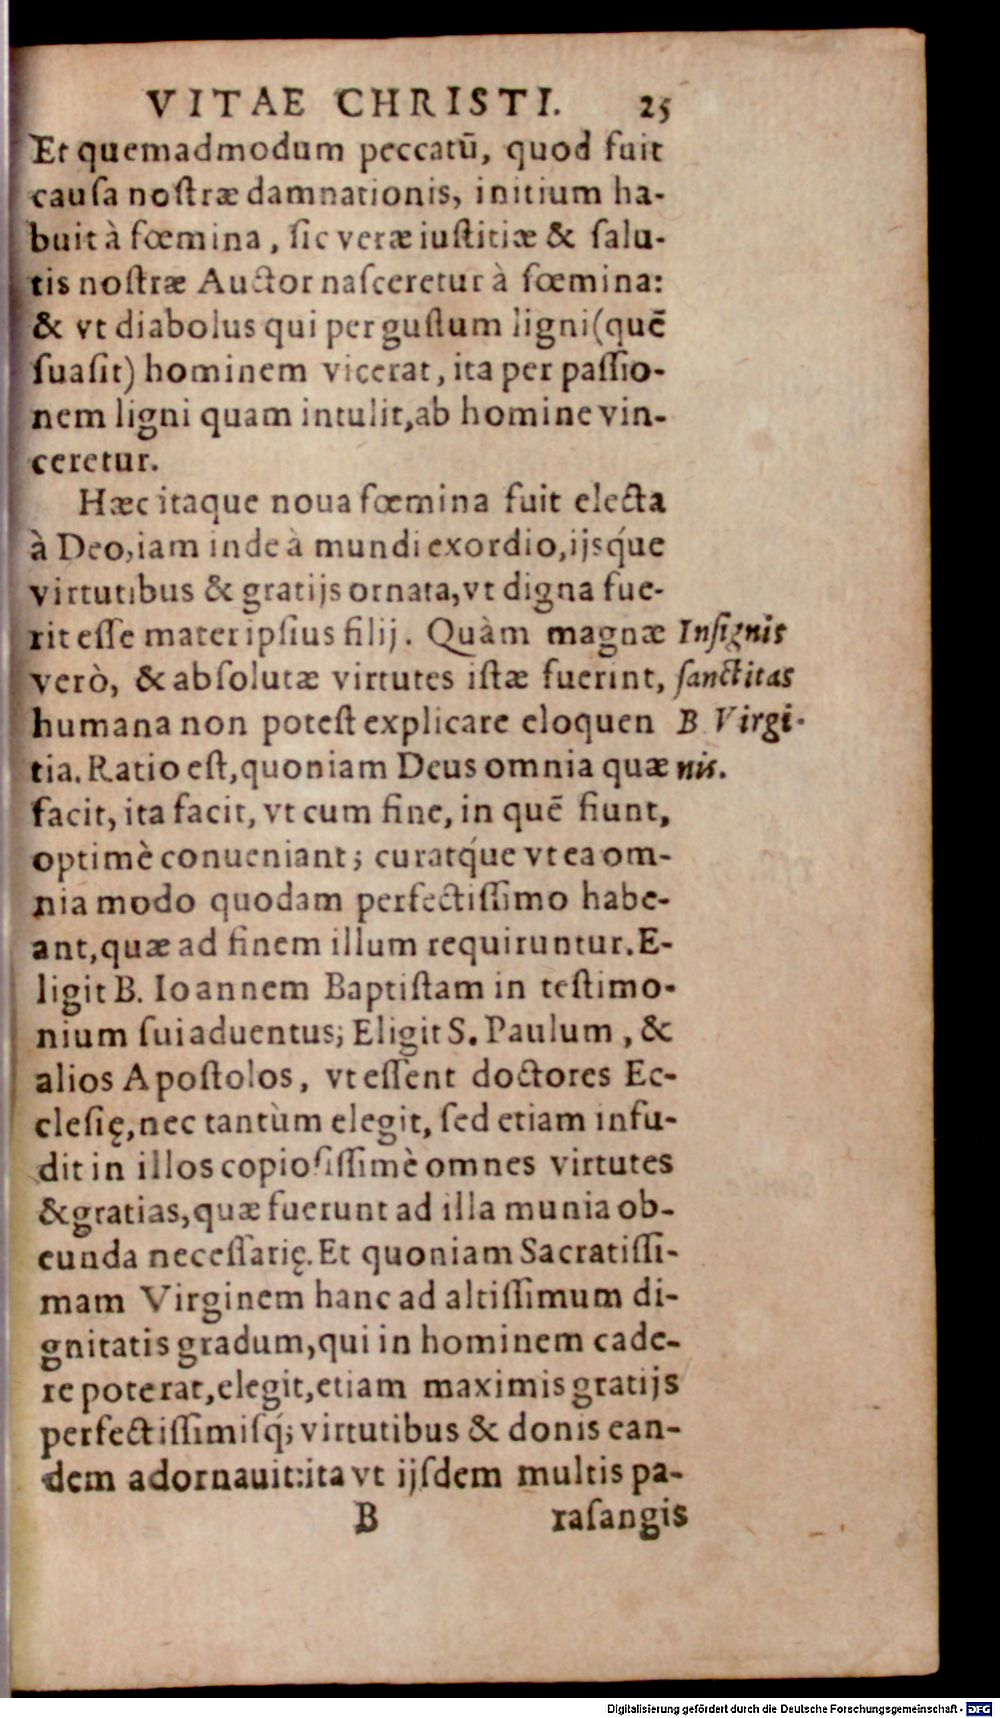 VITAE CHRISTI. 25
Et quemadmodum peccatū, quod fuit
cauſa noſtræ damnationis, initium ha-
buit à fœmina, ſic veræ iuſtitiæ & ſalu-
tis noſtræ Auctor naſceretur à fœmina:
& vt diabolus qui per guſtum ligni (quē
ſuaſit) hominem vicerat, ita per paſſio-
nem ligni quam intulit, ab homine vin-
ceretur.
Hæc itaque noua fœmina fuit electa
à Deo, iam inde à mundi exordio, ijsq́ue
virtutibus & gratijs ornata, vt digna fue-
rit eſſe mater ipſius filij. Quàm magnæ
verò, & abſolutæ virtutes iſtæ fuerint,
humana non poteſt explicare eloquen
tia. Ratio eſt, quoniam Deus omnia quæ
Inſignis
ſanctitas
B. Virgi-
nis.
facit, ita facit, vt cum fine, in quē fiunt,
optimè conueniant; curatq́ue vt ea om-
nia modo quodam perfectiſſimo habe-
ant, quæ ad finem illum requiruntur. E-
ligit B. Ioannem Baptiſtam in teſtimo-
nium ſui aduentus; Eligit S. Paulum, &
alios Apoſtolos, vt eſſent doctores Ec-
cleſię, nec tantùm elegit, ſed etiam infu-
dit in illos copioſiſſimè omnes virtutes
& gratias, quæ fuerunt ad illa munia ob-
eunda neceſſarię. Et quoniam Sacratiſſi-
mam Virginem hanc ad altiſſimum di-
gnitatis gradum, qui in hominem cade-
re poterat, elegit, etiam maximis gratijs
perfectiſſimiſq́; virtutibus & donis ean-
dem adornauit: ita vt ijſdem multis pa-
B raſangis
Digitalisierung gefördert durch die Deutsche Forschungsgemeinschaft - DFG